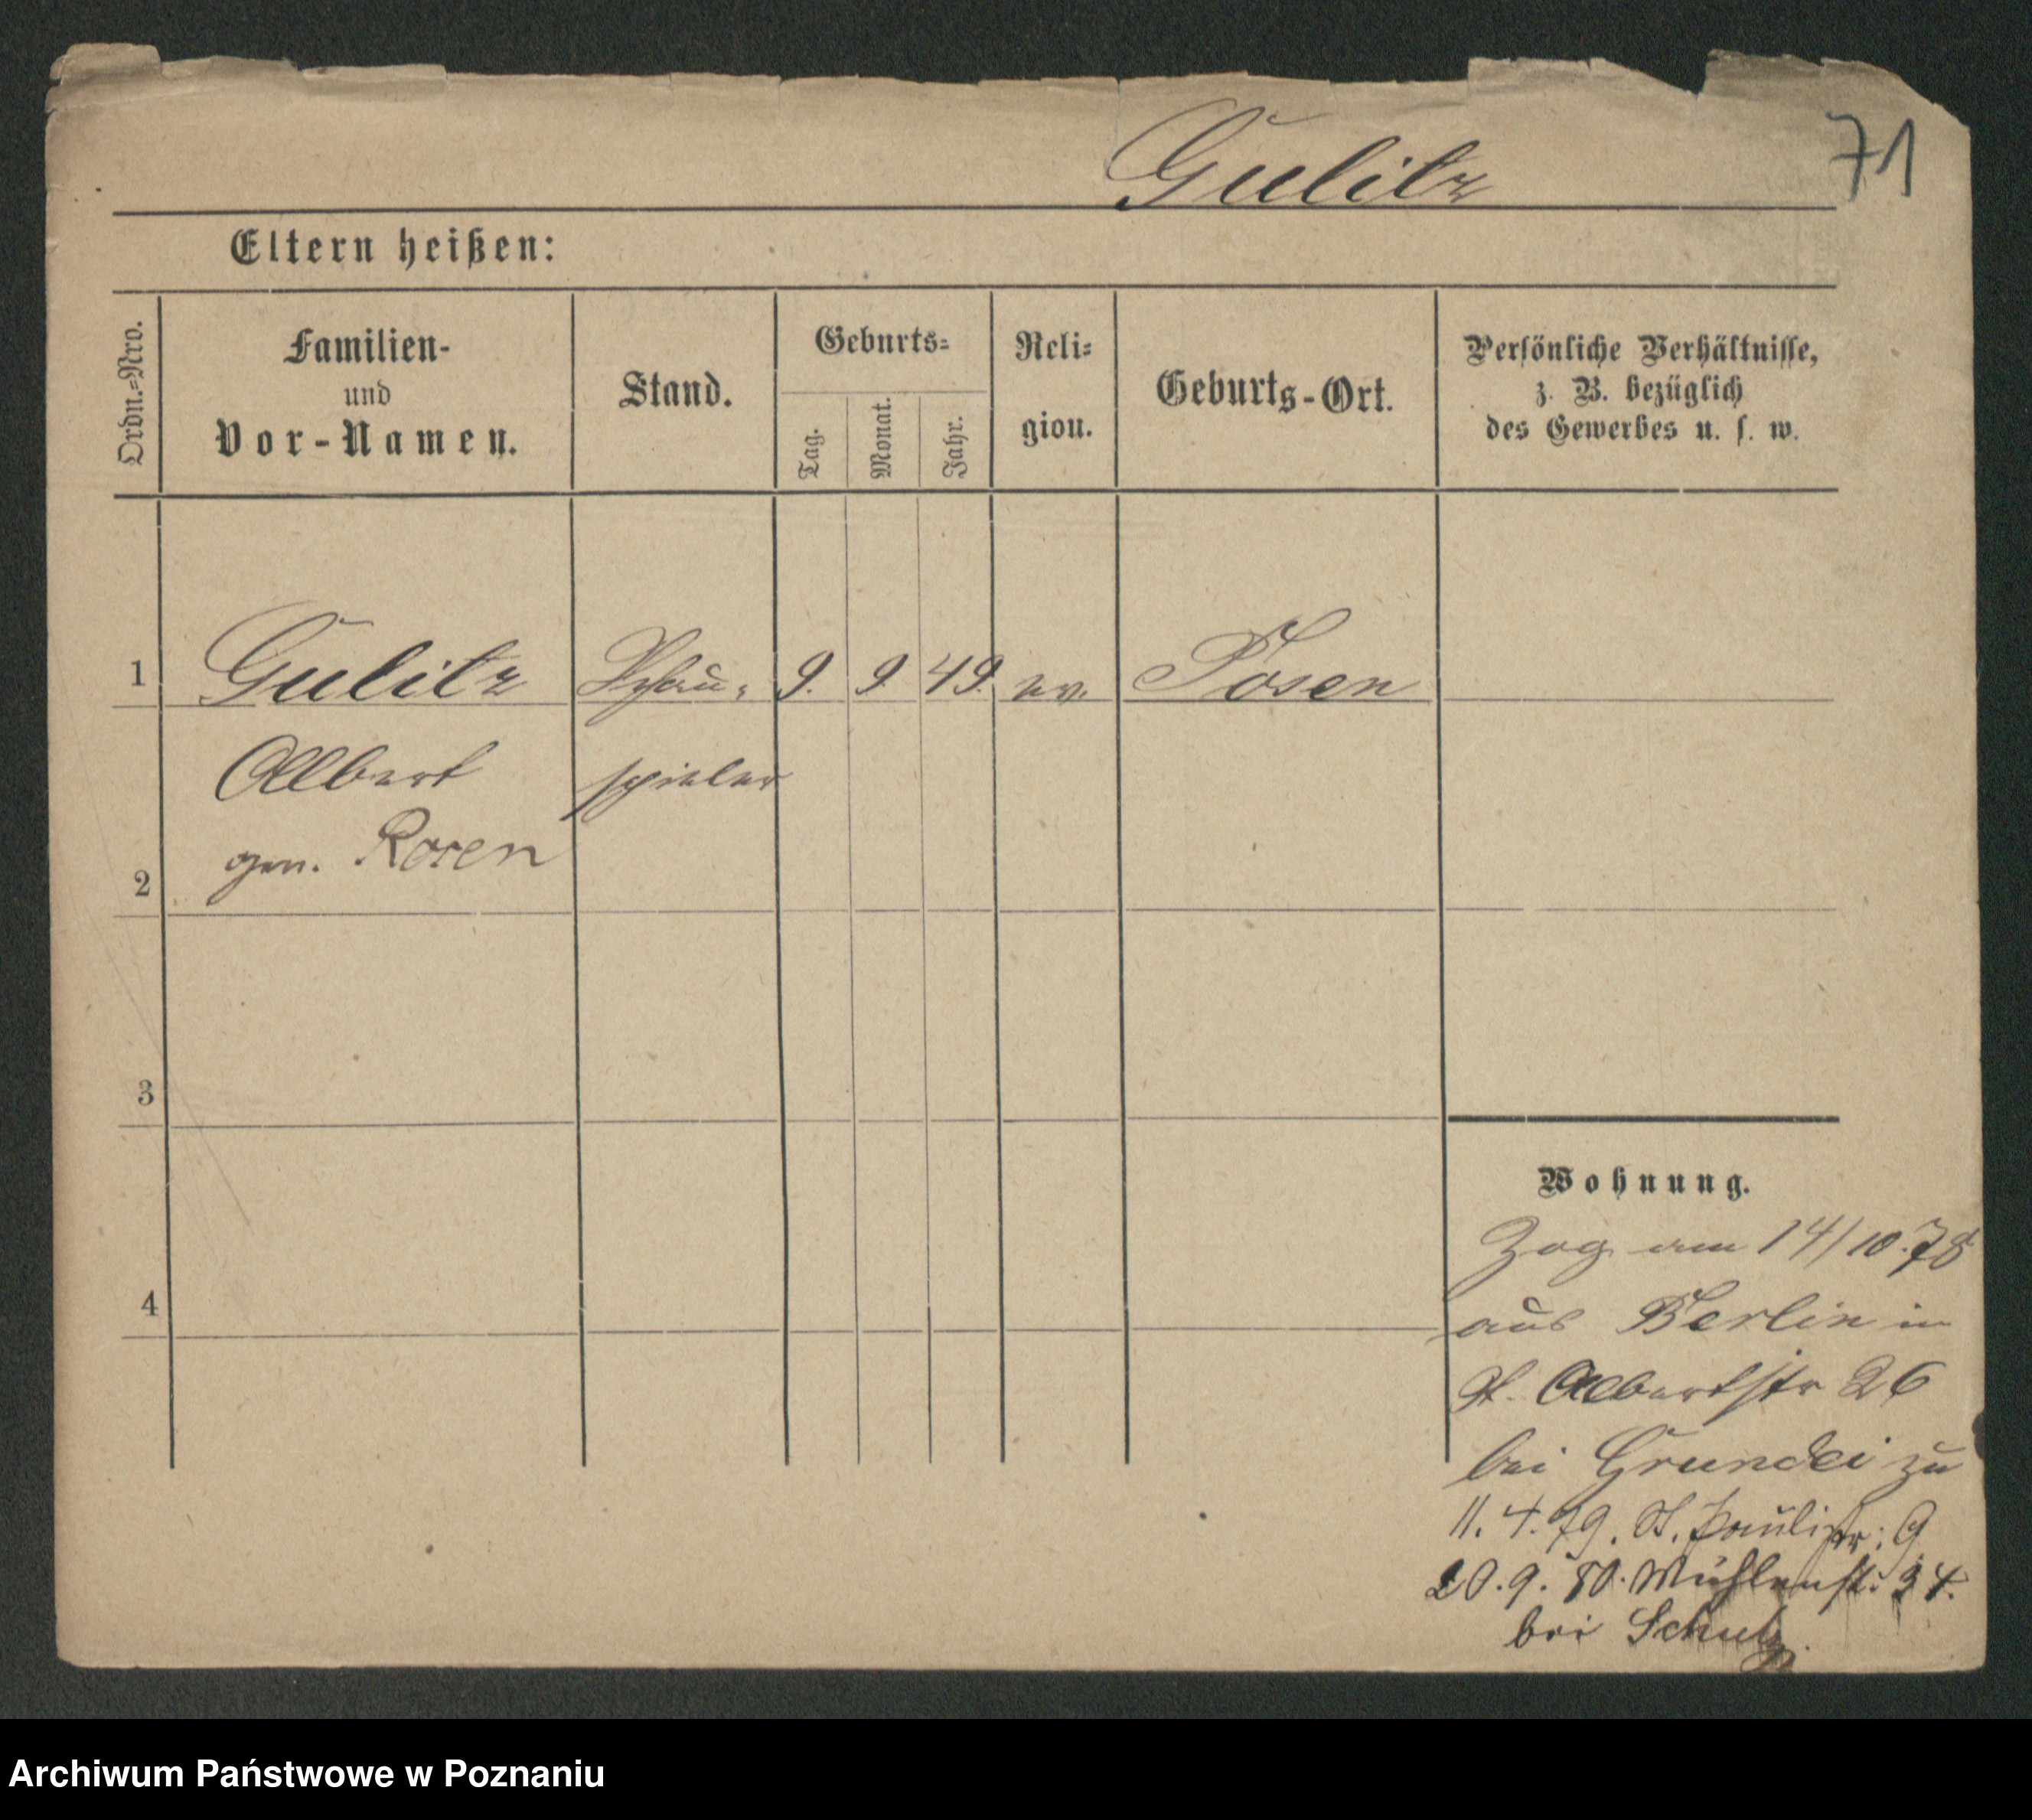 Gulitz 71
Eltern heißen:
Ordn.=Nro.
Familien-
und
Vor-Namen.
Stand.
Geburts=
Tag.
Monat.
Jahr.
Reli=
gion.
Geburts-Ort.
Persönliche Verhältnisse,
z. B. bezüglich
des Gewerbes u. s. w.
1 Gulitz Schau= 9. 9. 49. ev. Posen
Albert spieler
gen. Rosen
2
3
4
Wohnung.
Zog am 14/10.78
aus Berlin in
St. Albertstr 26
bei Grundei zu
11. 4. 79. St. Paulistr: 9
20. 9. 80. Mühlenstr. 34.
bei Schulz.
Archiwum Państwowe w Poznaniu